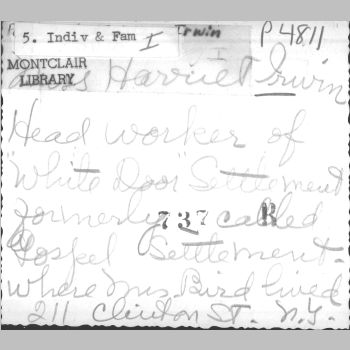 Irwin
P4811
5. Indiv & Fam I
I
MONTCLAIR
LIBRARY
Miss Harriet Irwin
Head worker of
"White Door" Settlement
formerly called
737 B
Gospel Settlement -
where Mrs. Bird lived
211 Clinton St. N.Y.